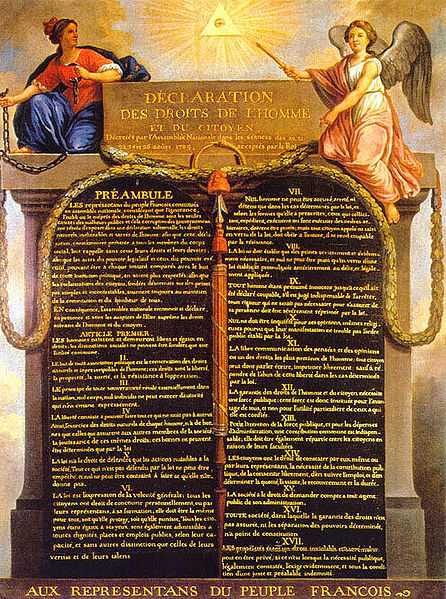 DÉCLARATION
DES DROITS DE L'HOMME
ET DU CITOYEN,
Décrétés par l'Assemblée Nationale dans les séances des 20, 21,
23, 24 et 26 août 1789, acceptés par le Roi
PRÉAMBULE
LES représentans du peuple François, constitués
en assemblée nationale, considérant que l'ignorance,
l'oubli ou le mépris des droits de l'homme sont les seules
causes des malheurs publics et de la corruption des gouvernemens
ont résolu d'exposer dans une déclaration solemnelle, les droits
naturels, inaliénables et sacrés de l'homme; afin que cette décla-
ration, constamment présente à tous les membres du corps
social, leur rappelle sans cesse leurs droits et leurs devoirs;
afin que les actes du pouvoir législatif et ceux du pouvoir exé-
cutif, pouvant être à chaque instant comparés avec le but
de toute institution politique, en soient plus respectés; afin que
les réclamations des citoyens, fondées désormais sur des princi-
pes simples et incontestables, tournent toujours au maintien
de la constitution et du bonheur de tous.
EN conséquence, l'assemblée nationale reconnoit et déclare,
en présence et sous les auspices de l'Etre suprême les droits
suivans de l'homme et du citoyen.
ARTICLE PREMIER.
LES hommes naissent et demeurent libres et égaux en
droits. les distinctions sociales ne peuvent être fondées que sur
l'utilité commune.
II.
LE but de toute association politique est la conservation des droits
naturels et imprescriptibles de l'homme; ces droits sont la liberté,
la propriété, la sureté, et la résistance à l'oppression.
III.
LE principe de toute souveraineté réside essentiellement dans
la nation, nul corps, nul individu ne peut exercer d'autorité
qui n'en émane expressément.
IV.
LA liberté consiste à pouvoir faire tout ce qui ne nuit pas à autrui.
Ainsi, l'exercice des droits naturels de chaque homme, n'a de bor-
nes que celles qui assurent aux autres membres de la société
la jouissance de ces mêmes droits; ces bornes ne peuvent
être déterminées que par la loi.
V.
LA loi n'a le droit de défendre que les actions nuisibles à la
société. Tout ce qui n'est pas défendu par la loi ne peut être
empêché, et nul ne peut être contraint à faire ce qu'elle n'or-
donne pas.
VI.
LA loi est l'expression de la volonté générale; tous les
citoyens ont droit de concourir personnellement, ou par
leurs représentans, à sa formation; elle doit être la même
pour tous, soit qu'elle protege, soit qu'elle punisse. Tous les cito-
yens étant égaux à ses yeux, sont également admissibles à
toutes dignités, places et emplois publics, selon leur ca-
pacité, et sans autres distinction que celles de leurs
vertus et de leurs talens.
VII.
NUL homme ne peut être accusé, arreté ni
détenu que dans les cas déterminés par la loi, et
selon les formes qu'elle a prescrites. ceux qui sollici-
tent, expédient, exécutent ou font exécuter des ordres ar-
bitraires, doivent être punis; mais tout citoyen appelé ou saisi
en vertu de la loi, doit obéir à l'instant, il se rend coupable
par la résistance.
VIII.
LA loi ne doit établir que des peines strictement et évidem-
ment nécessaires, et nul ne peut être puni qu'en vertu d'une
loi établie et promulguée antérieurement au délit, et légale-
ment appliquée.
IX.
TOUT homme étant présumé innocent jusqu'à ce qu'il ait
été déclaré coupable, s'il est jugé indispensable de l'arrêter,
toute rigueur qui ne seroit pas nécessaire pour s'assurer de
sa personne doit être sévèrement réprimée par la loi.
X.
NUL ne doit être inquiété pour ses opinions, mêmes religi-
euses pourvu que leur manifestation ne trouble pas l'ordre
public établi par la loi.
XI.
LA libre communication des pensées et des opinions
est un des droits les plus précieux de l'homme; tout citoyen
peut donc parler, écrire, imprimer librement; sauf à ré-
pondre de l'abus de cette liberté dans les cas déterminés
par la loi.
XII.
LA garantie des droits de l'homme et du citoyen, nécessite
une force publique; cette force est donc instituée pour l'avan-
tage de tous, et non pour l'utilité particulière de ceux à qui
elle est confiée.
XIII.
POUR l'entretien de la force publique, et pour les dépenses
d'administration, une contribution commune est indispen-
sable; elle doit être également répartie entre les citoyens en
raison de leurs facultées.
XIV.
LES citoyens ont le droit de constater par eux mêmes ou
par leurs représentans, la nécessité de la contribution pub-
lique, de la consentir librement, d'en suivre l'emploi, et d'en
déterminer la quotité, l'assiette, le recouvrement et la durée.
XV.
LA société a le droit de demander compte à tout agent
public de son administration.
XVI.
TOUTE société, dans laquelle la garantie des droits n'est
pas assurée, ni les séparation des pouvoirs déterminée,
n'a point de constitution.
XVII.
LES propriétés étant un droit inviolable et sacré, nul ne
peut en être privé, si ce n'est lorsque la nécessité publique,
légalement constatée, l'exige évidemment, et sous la condi-
tion d'une juste et préalable indemnité.
AUX REPRESENTANS DU PEUPLE FRANCOIS